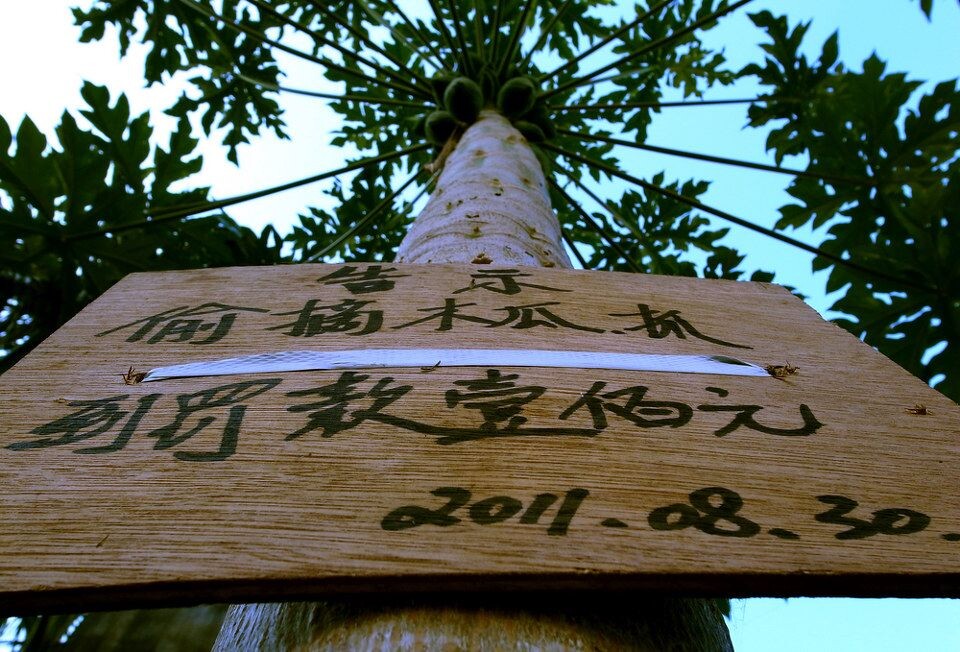 告示
偷摘木瓜.抓
到罚款壹佰元
2011.08.30.